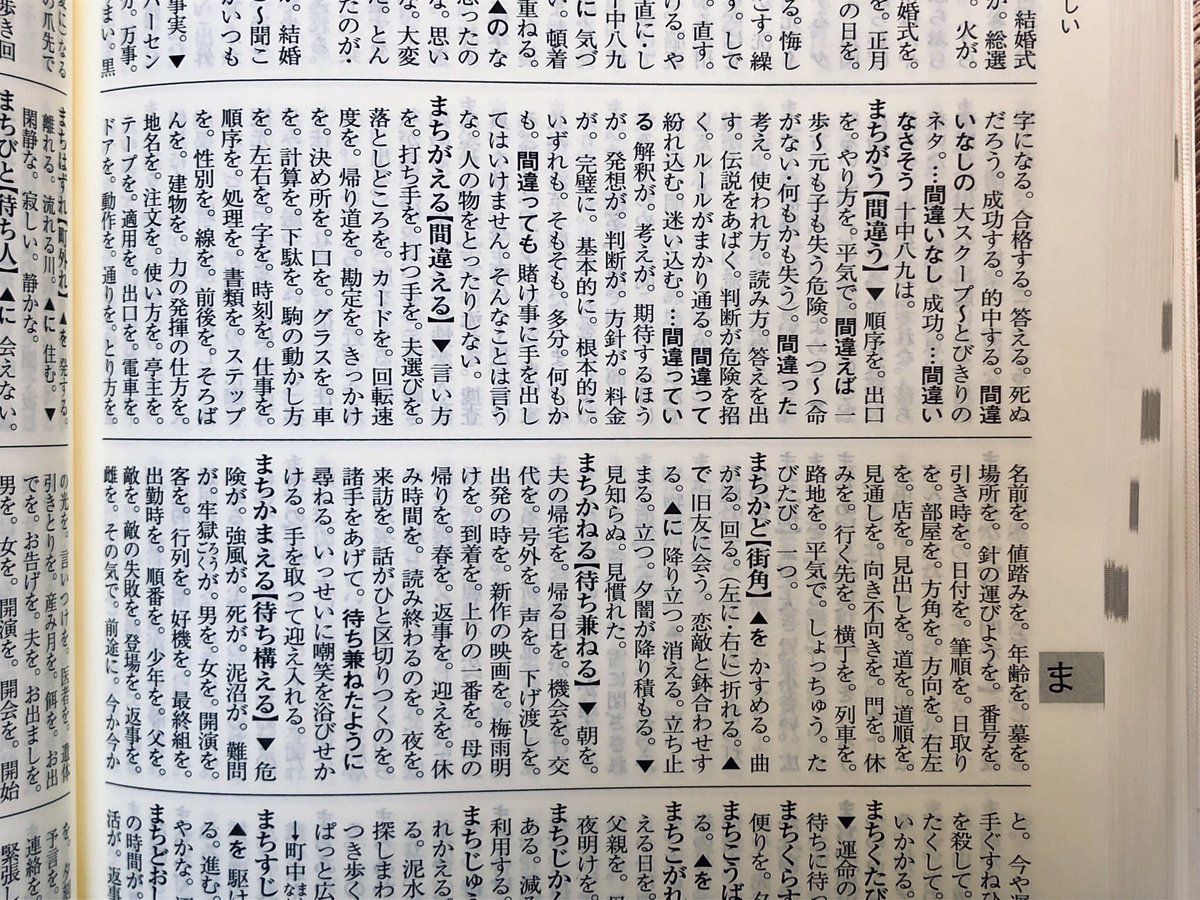 しい
結婚式
が。総選
。火が。
婚式を。
。正月
の日を。
る。悔し
こす。繰
す。しで
。直す。
ける。や
直に・し
中八九
に 気づ
い。頓着
重ねる。
▲の な
思ったの
な。思い
る。大変
。とん
たのが・
。結婚
〜聞こ
がいつも
事実。▼
パーセン
が。万事。
まい。黒
字になる。合格する。答える。死ぬ
だろう。成功する。的中する。間違
いなしの 大スクープ〜とびきりの
ネタ。…間違いなし 成功。…間違い
なさそう 十中八九は。
まちがう【間違う】▼順序を。出口
を。やり方を。平気で。間違えば 一
歩〜元も子も失う危険。一つ〜(命
がない・何もかも失う)。間違った
考え。使われ方。読み方。答えを出
す。伝説をあばく。判断が危険を招
く。ルールがまかり通る。間違って
紛れ込む。迷い込む。…間違ってい
る 解釈が。考えが。期待するほう
が。発想が。判断が。方針が。料金
が。完璧に。基本的に。根本的に。
いずれも。そもそも。多分。何もか
も。間違っても 賭け事に手を出し
てはいけません。そんなことは言う
な。人の物をとったりしない。
まちがえる【間違える】▼言い方
を。打ち手を。打つ手を。夫選びを。
落としどころを。カードを。回転速
度を。帰り道を。勘定を。きっかけ
を。決め所を。口を。グラスを。車
を。計算を。下駄を。駒の動かし方
を。左右を。字を。時刻を。仕事を。
順序を。処理を。書類を。ステップ
を。性別を。線を。前後を。そろば
んを。建物を。力の発揮の仕方を。
地名を。注文を。使い方を。亭主を。
テープを。適用を。出口を。電車を。
ドアを。動作を。通りを。とり方を。
名前を。値踏みを。年齢を。墓を。
場所を。針の運びようを。番号を。
引き時を。日付を。筆順を。日取り
を。部屋を。方角を。方向を。右左
を。店を。見出しを。道を。道順を。
見通しを。向き不向きを。門を。休
みを。行く先を。横丁を。列車を。
路地を。平気で。しょっちゅう。た
びたび。一つ。
まちかど【街角】▲を かすめる。曲
がる。回る。(左に・右に)折れる。▲
で 旧友に会う。恋敵と鉢合わせす
る。▲に 降り立つ。消える。立ち止
まる。立つ。夕闇が降り積もる。▼
見知らぬ。見慣れた。
まちかねる【待ち兼ねる】▼朝を。
夫の帰宅を。帰る日を。機会を。交
代を。号外を。声を。下げ渡しを。
出発の時を。新作の映画を。梅雨明
けを。到着を。上りの一番を。母の
帰りを。春を。返事を。迎えを。休
み時間を。読み終わるのを。夜を。
来訪を。話がひと区切りつくのを。
諸手をあげて。待ち兼ねたように
尋ねる。いっせいに嘲笑を浴びせか
ける。手を取って迎え入れる。
まちかまえる【待ち構える】▼危
険が。強風が。死が。泥沼が。難問
が。牢獄ろうごくが。男を。女を。開演を。
客を。行列を。好機を。最終組を。
出勤時を。順番を。少年を。父を。
敵を。敵の失敗を。登場を。返事を。
雌を。その気で。前途に。今か今か
と。今や遅
手ぐすねひ
を殺して。
たくして。
いかかる。
まちくたび
▼運命の
待ちに待つ
まちくらす
便りを。夕
まちこうば
る。▲を
まちこがれ
える日を。
父親を。
夜明けを。
まちじかん
ある。減る
まちじゅう
利用する。
れかえる。
る。泥水
探しまわ
つき歩く
ぱっと広
→町中まちなか
まちすじ
▲を 駆け
る。進む。
やかな。
まちどお
の時間が。
活が。返事
ま
歩き回
の爪先で
夜になる
まちはずれ【町外れ】▲を 発する。
離れる。流れる川。▲に 住む。▼
閑静な。寂しい。静かな。
まちびと【待ち人】▲に 会えない。
の光を。言いつけを。医者を。遺体
引きとりを。産み月を。餌を。お出
でを。お告げを。夫を。お出ましを。
男を。女を。開演を。開会を。開始
を。夕刊
予言を。
連絡を。
緊張し